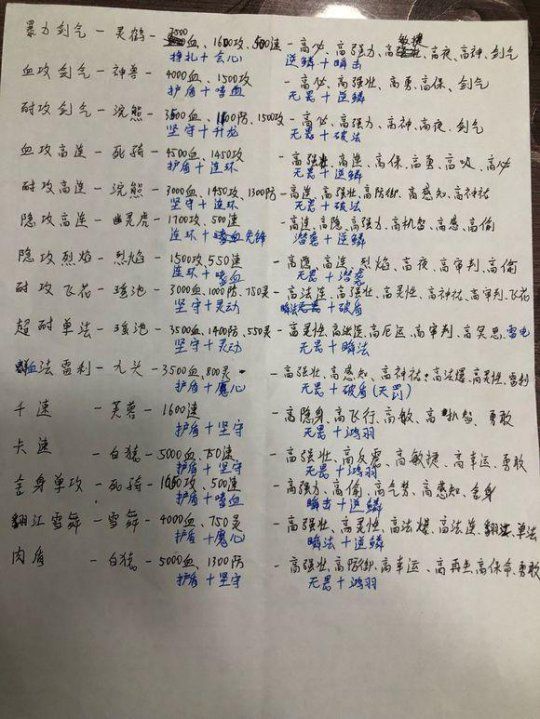 暴力剑气 - 灵鹤 - 3500血、1600攻、500速 - 高必、高强力、高敏捷、高夜、高神、剑气
挣扎+会心 逆鳞+瞬击
血攻剑气 - 神兽 - 4000血、1500攻 - 高必、高强壮、高勇、高保、剑气
护盾+嗜血 无畏+逆鳞
耐攻剑气 - 浣熊 - 血、防、1500攻 - 高必、高强力、高神、高夜、剑气
坚守+升龙 无畏+破法
血攻高连 - 死骑 - 4500血、1450攻 - 高强壮、高连、高保、高勇、高吸、高必
护盾+连环 无畏+逆鳞
耐攻高连 - 浣熊 - 3000血、1450攻、1300防 - 高连、高强壮、高防御、高感知、高神祐
坚守+连环 无畏+破法
隐攻高连 - 幽灵虎 - 1700攻、500速 - 高连、高隐、高强力、高机敏、高感、高偷
连环+先锋 潜袭+逆鳞
隐攻烈焰 - 烈焰 - 1500攻、550速 - 高隐、高连、烈焰、高夜、高审判、高偷
连环+嗜血 无畏+潜袭
耐攻飞花 - 瑶池 - 3000血、1000防、750灵 - 高法连、高强壮、高灵性、高神祐、高审判、飞花
坚守+灵动 +破盾
超耐单法 - 瑶池 - 3500血、1400防、550灵 - 高灵性、高法连、高厄运、高审判、高冥思、雷电
坚守+灵动 无畏+瞬法
血法雷利 - 九头 - 3500血、800灵 - 高强壮、高感知、高神祐、高法爆、高灵性、雷利
护盾+魔心 无畏+破盾(天罚)
千速 - 芙蓉 - 1600速 - 高隐身、高飞行、高敏、高、勇敢
护盾+坚守 无畏+鸿羽
卡速 - 白猿 - 5000血、750速 - 高强壮、高反震、高敏捷、高幸运、勇敢
护盾+坚守 无畏+鸿羽
舍身单攻 - 死骑 - 攻、500速 - 高强力、高偷、高气势、高感知、舍身
护盾+嗜血 瞬击+逆鳞
翻江雪舞 - 雪舞 - 4000血、750灵 - 高强壮、高灵性、高法爆、高法连、翻江、单法
护盾+魔心 瞬法+逆鳞
肉盾 - 白猿 - 5000血、1300防 - 高强壮、高防御、高幸运、高再生、高保命、勇敢
护盾+坚守 无畏+鸿羽